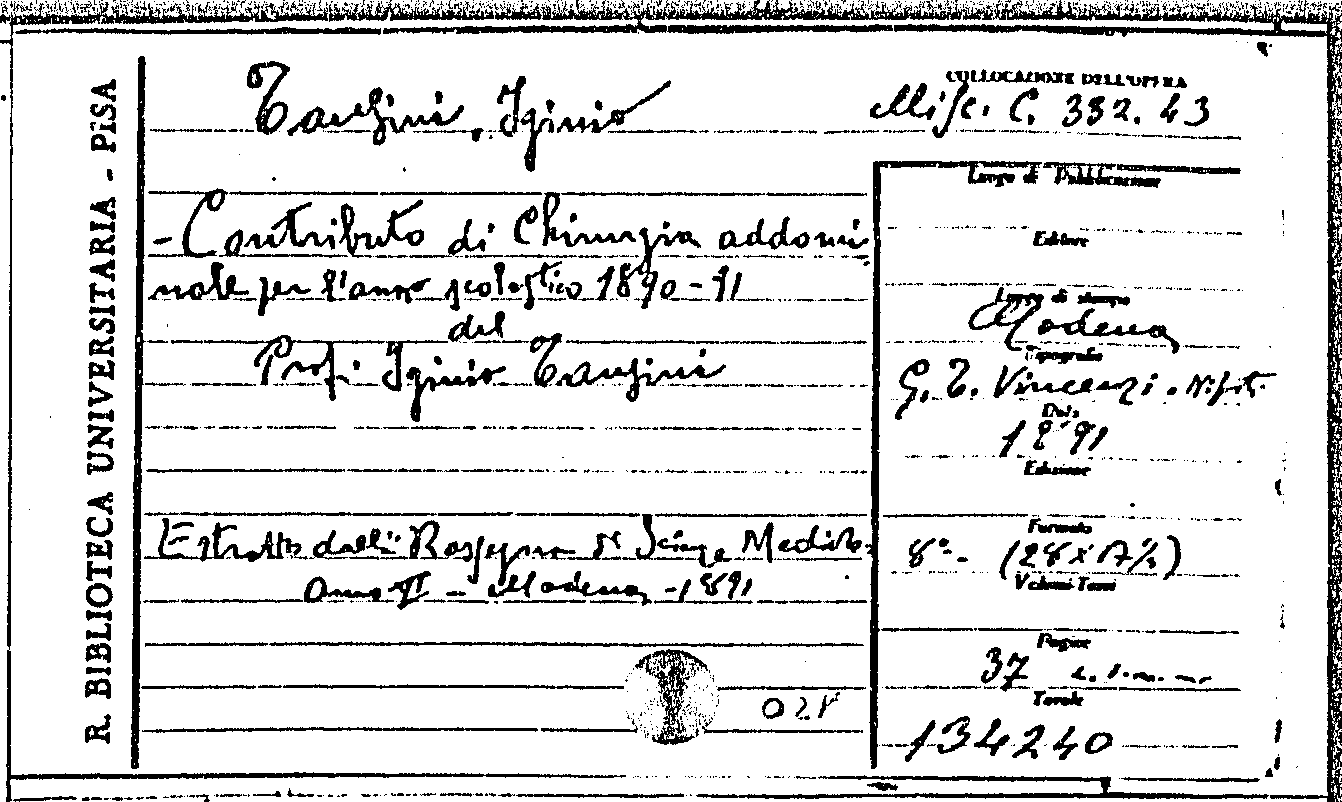 R. BIBLIOTECA UNIVERSITARIA - PISA
Tansini, Iginio
COLLOCAZIONE DELL'OPERA
Misc. C. 332. 43
- Contributo di Chirurgia addomi-
nale per l'anno scolastico 1890-91
del
Prof. Iginio Tansini
Estratto dalla Rassegna di Scienze Mediche
Anno VI - Modena - 1891
021
Luogo di Pubblicazione
Editore
Luogo di stampa
Modena
Tipografia
G. T. Vincenzi. Nipoti
Data
1891
Edizione
Formato
8º- (28x17½)
Volumi-Tomi
Pagine
37
Tavole
134240